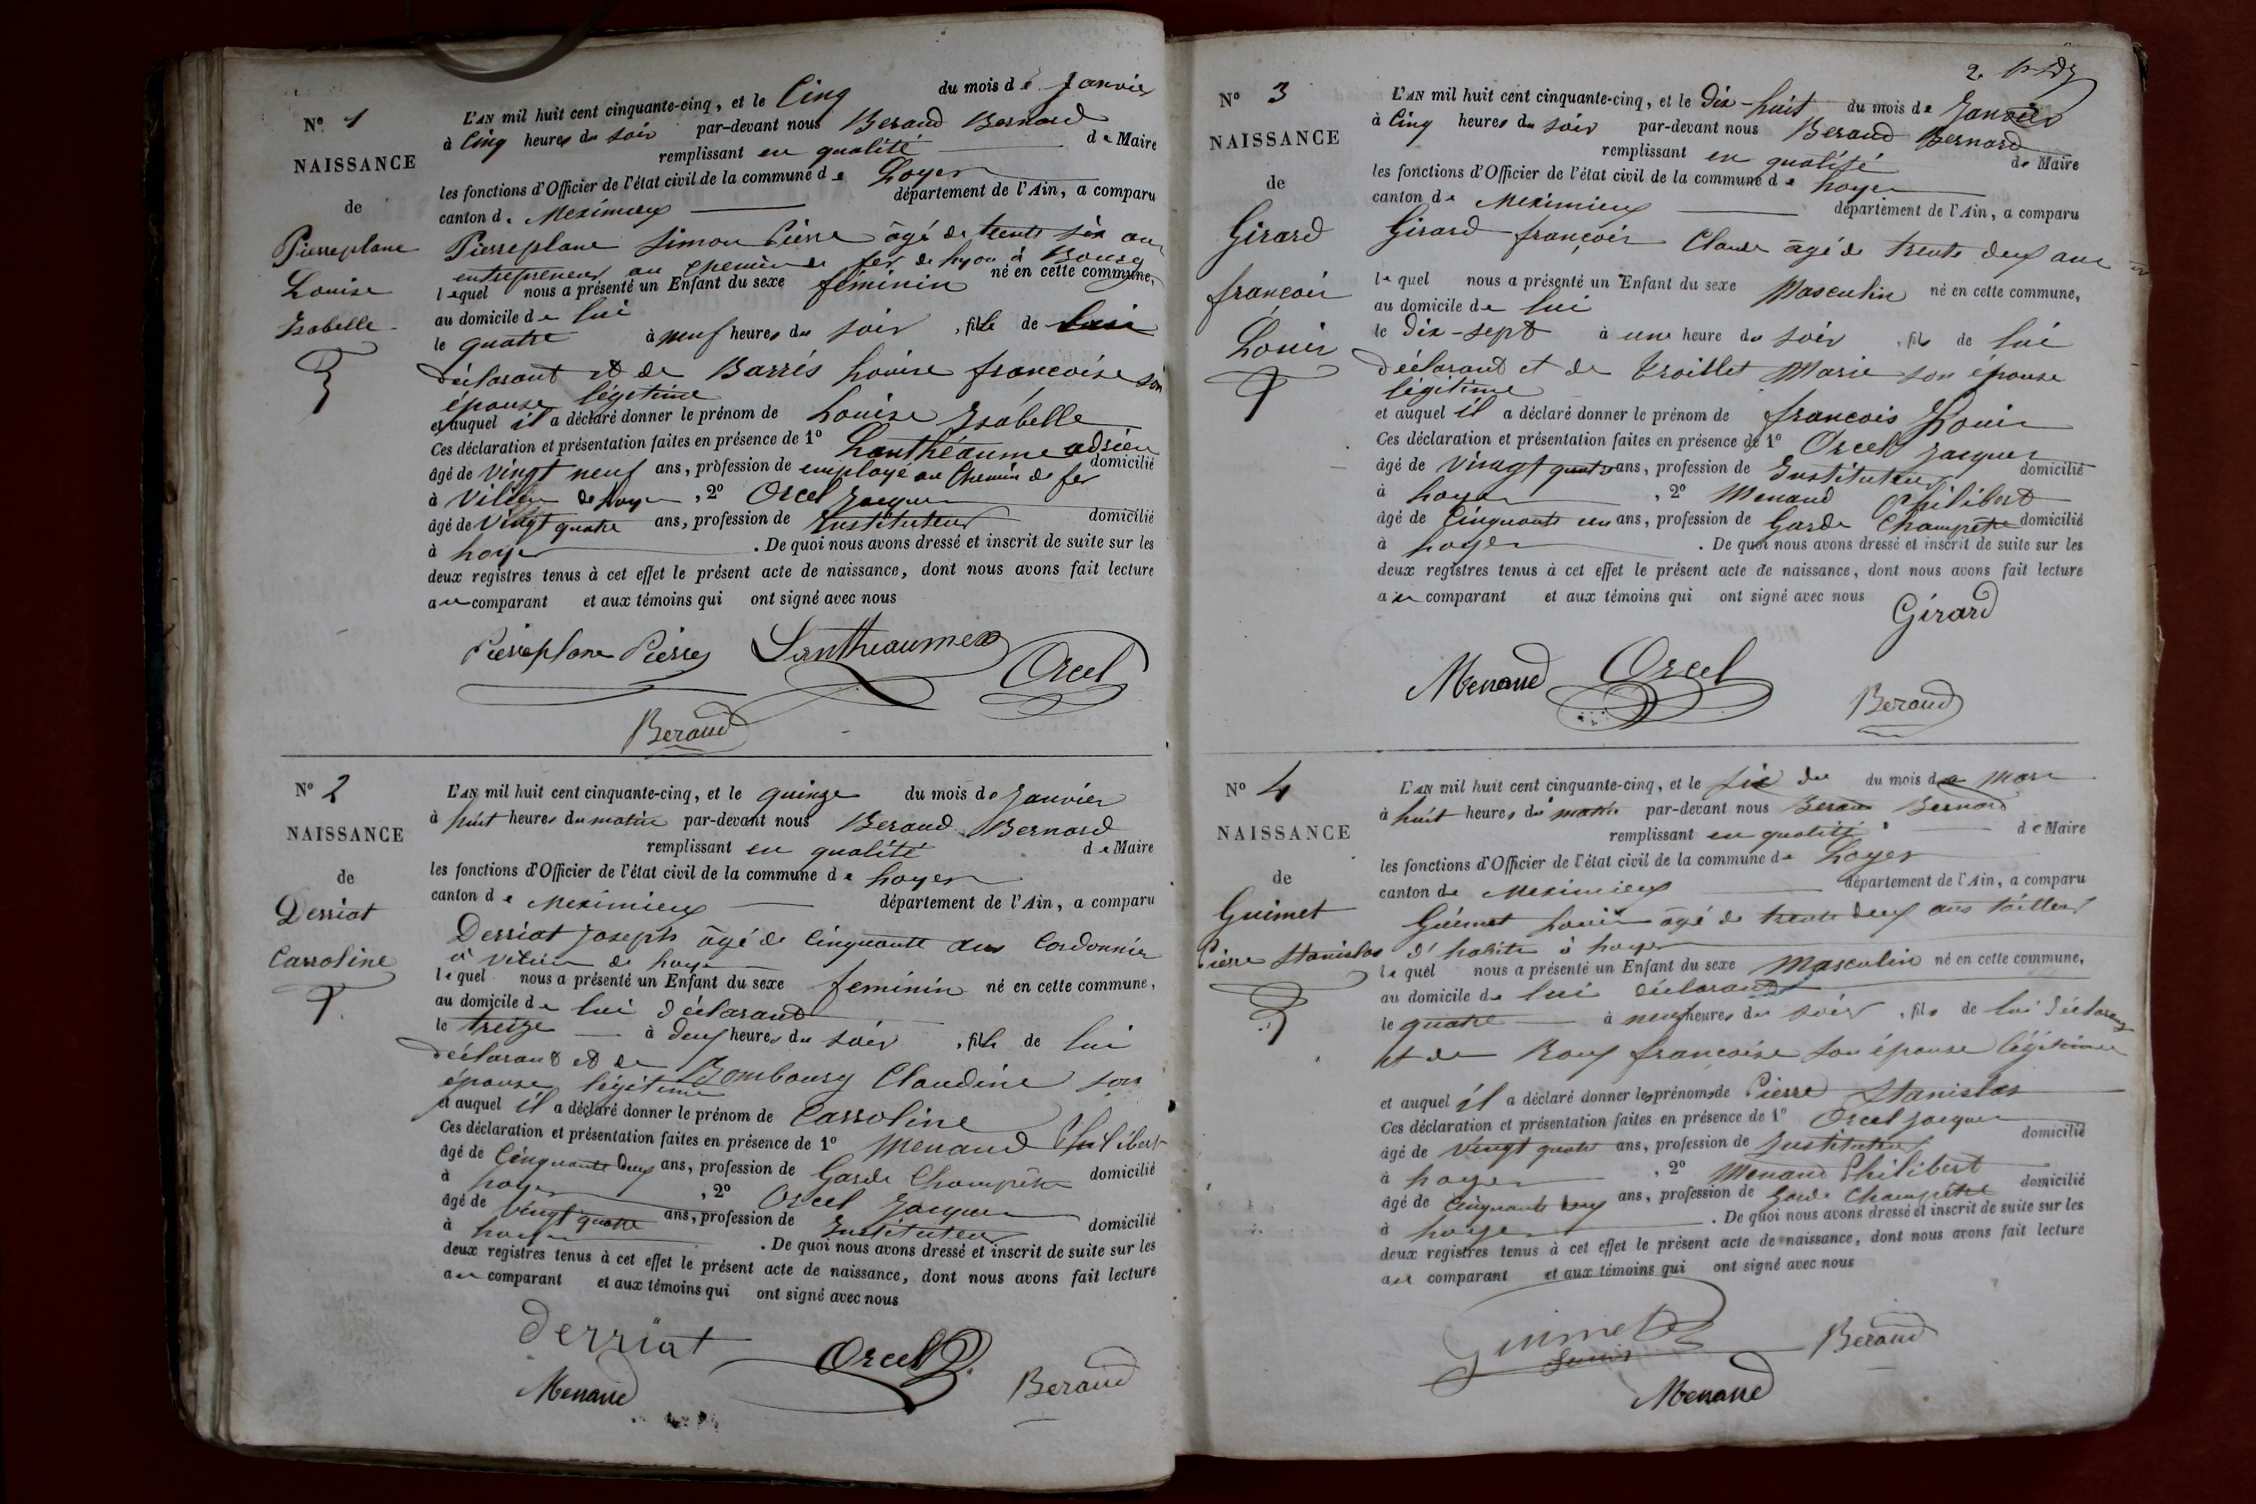 N° 1
NAISSANCE
de
Pierreplane
Louise
Isabelle
L'AN mil huit cent cinquante-cinq, et le Cinq du mois de Janvier
à Cinq heures du soir par-devant nous Beraud Bernard
remplissant en qualité de Maire
les fonctions d'Officier de l'état civil de la commune de Loyes
canton de Meximieux département de l'Ain, a comparu
Pierreplane Simon Pierre âgé de trente six ans
entrepreneur au chemin de fer de Lyon à Bourg
lequel nous a présenté un Enfant du sexe féminin né en cette commune,
au domicile de lui
le quatre à neuf heures du soir, fille de lui
déclarant et de Barrés Louise françoise son
épouse légitime
et auquel il a déclaré donner le prénom de Louise Isabelle
Ces déclaration et présentation faites en présence de 1° Lanthéaume adrien
âgé de vingt neuf ans, profession de employé au Chemin de fer domicilié
à Villieu de Loyes, 2° Orcel Jacques
âgé de vingt quatre ans, profession de Instituteur domicilié
à Loyes. De quoi nous avons dressé et inscrit de suite sur les
deux registres tenus à cet effet le présent acte de naissance, dont nous avons fait lecture
au comparant et aux témoins qui ont signé avec nous
Pierreplane Pierre Lantheaume Orcel
Beraud
N° 2
NAISSANCE
de
Derriat
Carroline
L'AN mil huit cent cinquante-cinq, et le quinze du mois de Janvier
à huit heures du matin par-devant nous Beraud Bernard
remplissant en qualité de Maire
les fonctions d'Officier de l'état civil de la commune de Loyes
canton de Meximieux département de l'Ain, a comparu
Derriat Joseph âgé de Cinquante ans Cordonnier
à Villieu de Loyes
lequel nous a présenté un Enfant du sexe feminin né en cette commune,
au domicile de lui déclarant
le treize à deux heures du soir, fille de lui
déclarant et de Bombourg Claudine son
épouse légitime
et auquel il a déclaré donner le prénom de Carroline
Ces déclaration et présentation faites en présence de 1° Menand Philibert
âgé de Cinquante deux ans, profession de Garde Champêtre domicilié
à Loyes, 2° Orcel Jacques
âgé de vingt quatre ans, profession de Instituteur domicilié
à Loyes. De quoi nous avons dressé et inscrit de suite sur les
deux registres tenus à cet effet le présent acte de naissance, dont nous avons fait lecture
au comparant et aux témoins qui ont signé avec nous
derriat Orcel
Menand Beraud
2
N° 3
NAISSANCE
de
Girard
françois
Louis
L'AN mil huit cent cinquante-cinq, et le dix-huit du mois de Janvier
à Cinq heures du soir par-devant nous Beraud Bernard
remplissant en qualité de Maire
les fonctions d'Officier de l'état civil de la commune de Loyes
canton de Meximieux département de l'Ain, a comparu
Girard françois Claude âgé de trente deux ans
lequel nous a présenté un Enfant du sexe Masculin né en cette commune,
au domicile de lui
le dix-sept à une heure du soir, fils de lui
déclarant et de Troillet Marie son épouse
légitime
et auquel il a déclaré donner le prénom de francois Louis
Ces déclaration et présentation faites en présence de 1° Orcel Jacques
âgé de vingt quatre ans, profession de Instituteur domicilié
à Loyes, 2° Menand Philibert
âgé de Cinquante un ans, profession de Garde Champetre domicilié
à Loyes. De quoi nous avons dressé et inscrit de suite sur les
deux registres tenus à cet effet le présent acte de naissance, dont nous avons fait lecture
au comparant et aux témoins qui ont signé avec nous
Girard
Menand Orcel
Beraud
N° 4
NAISSANCE
de
Guimet
Pierre Stanislas
L'AN mil huit cent cinquante-cinq, et le six du du mois de Mars
à huit heures du matin par-devant nous Beraud Bernard
remplissant en qualité de Maire
les fonctions d'Officier de l'état civil de la commune de Loyes
canton de Meximieux département de l'Ain, a comparu
Guimet Louis âgé de trente deux ans tailleur
d'habits à Loyes
lequel nous a présenté un Enfant du sexe Masculin né en cette commune,
au domicile de lui déclarant
le quatre à neuf heures du soir, fils de lui déclarant
et de Roux françoise son épouse légitime
et auquel il a déclaré donner les prénoms de Pierre Stanislas
Ces déclaration et présentation faites en présence de 1° Orcel Jacques
âgé de vingt quatre ans, profession de Instituteur domicilié
à Loyes, 2° Menand Philibert
âgé de Cinquante deux ans, profession de Garde Champêtre domicilié
à Loyes. De quoi nous avons dressé et inscrit de suite sur les
deux registres tenus à cet effet le présent acte de naissance, dont nous avons fait lecture
au comparant et aux témoins qui ont signé avec nous
Guimet Beraud
Louis
Menand